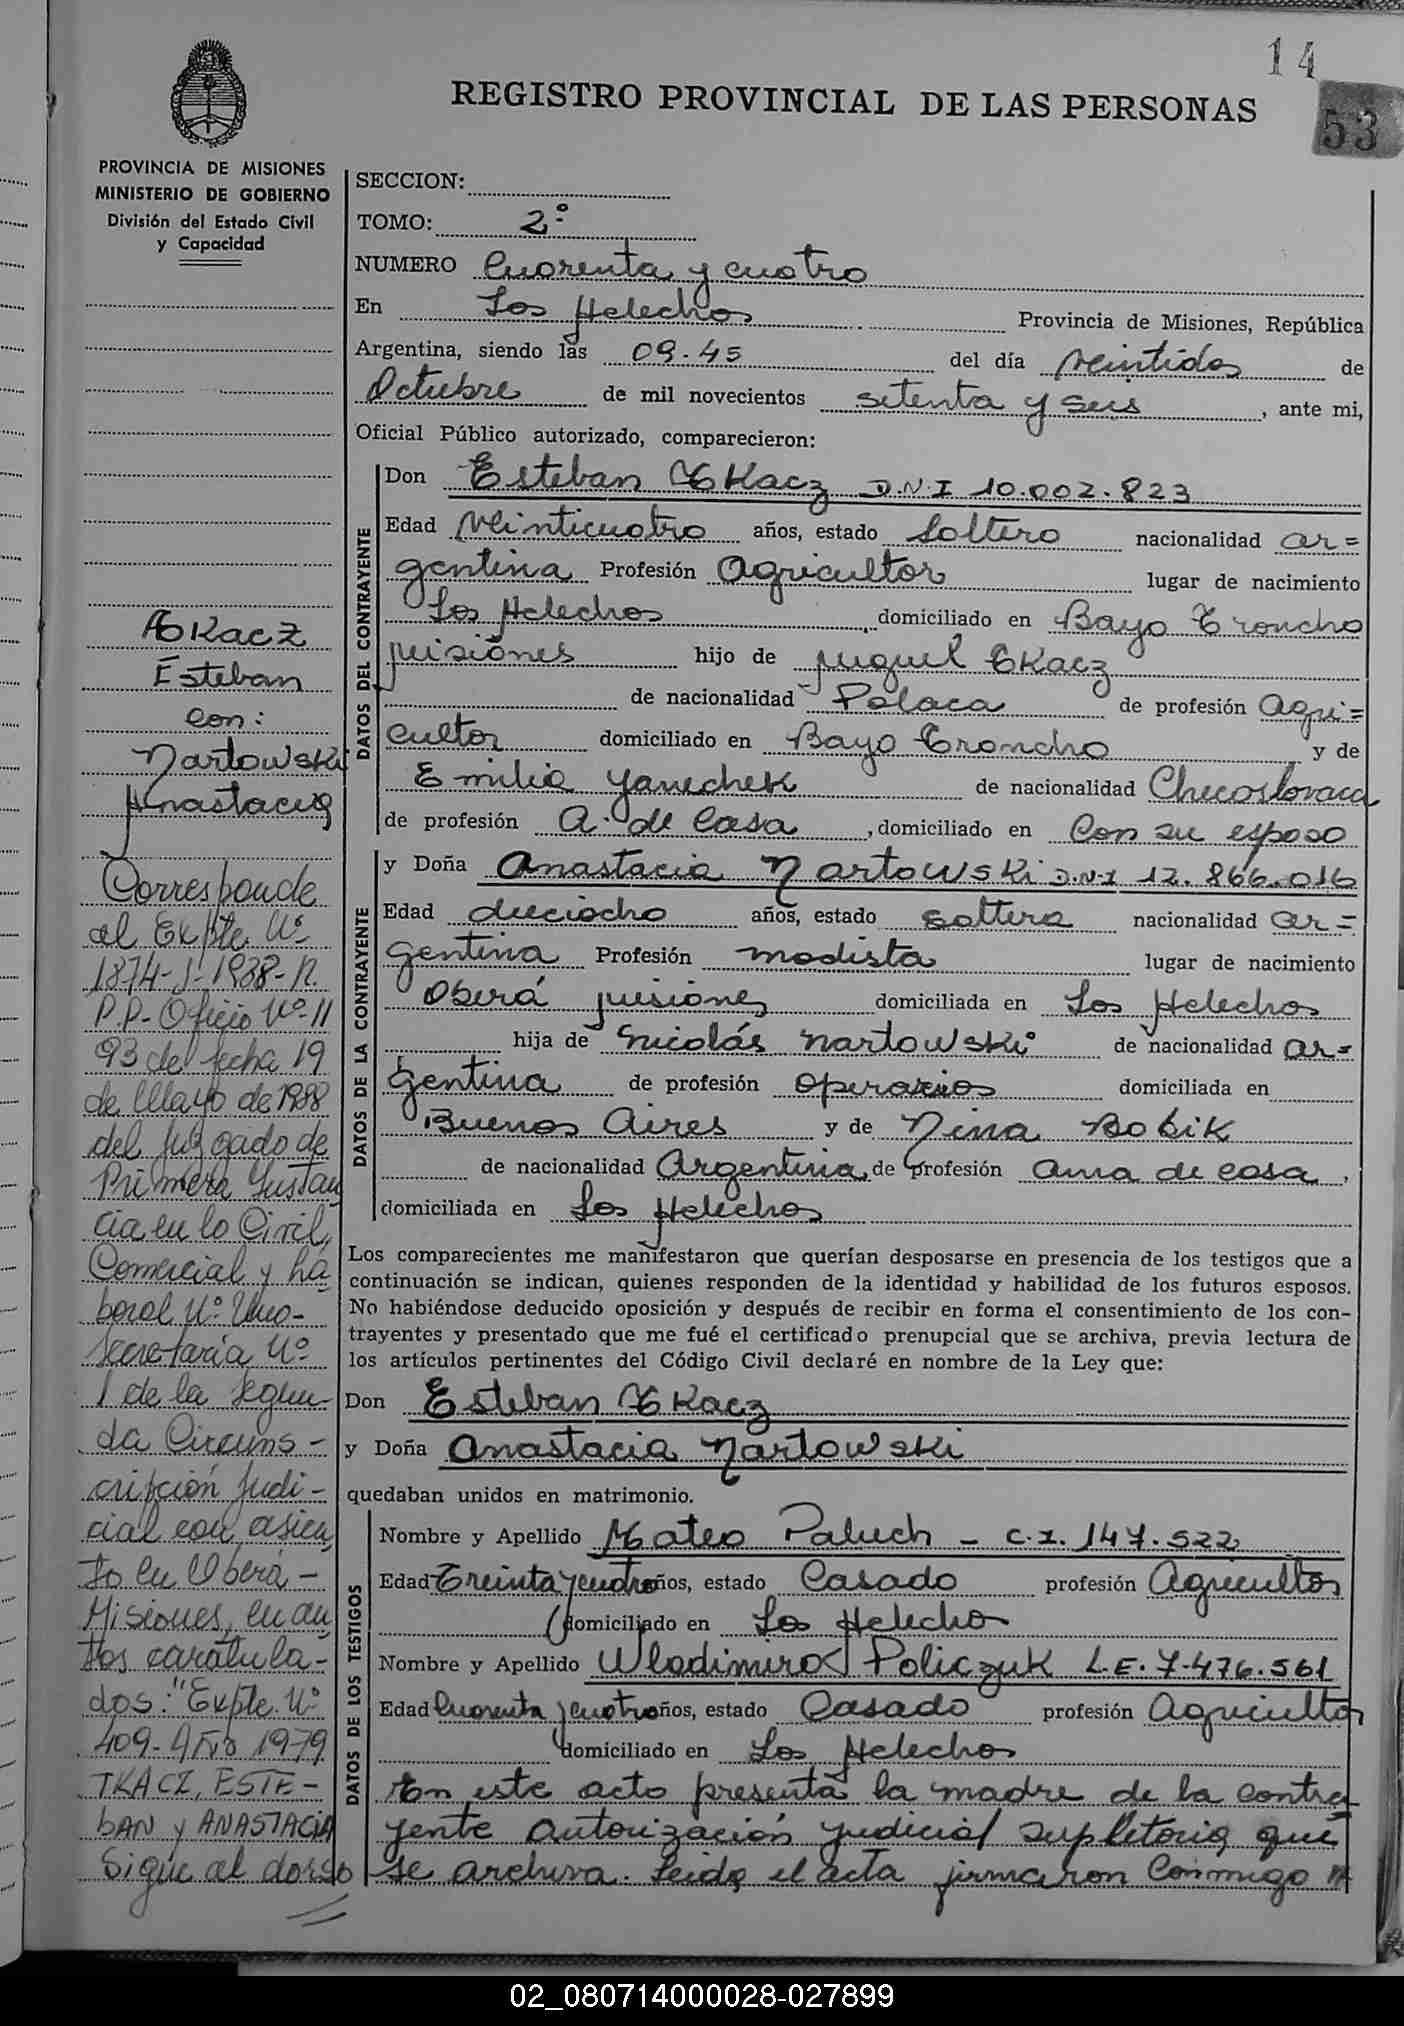 14
REGISTRO PROVINCIAL DE LAS PERSONAS
53
PROVINCIA DE MISIONES
MINISTERIO DE GOBIERNO
División del Estado Civil
y Capacidad
SECCION:
TOMO: 2º
NUMERO Cuarenta y cuatro
En Los Helechos Provincia de Misiones, República
Argentina, siendo las 09.45 del día veintidos de
Octubre de mil novecientos setenta y seis, ante mi,
Oficial Público autorizado, comparecieron:
DATOS DEL CONTRAYENTE
Don Esteban Tkacz D.N.I 10.002.823
Edad veinticuatro años, estado Soltero nacionalidad ar=
gentina Profesión Agricultor lugar de nacimiento
Los Helechos, domiciliado en Bayo Troncho
Misiones hijo de Miguel Tkacz
de nacionalidad Polaca de profesión Agri=
cultor domiciliado en Bayo Troncho y de
Emilia Yanechek de nacionalidad Checoslovaca
de profesión A. de Casa, domiciliado en Con su esposo
DATOS DE LA CONTRAYENTE
y Doña Anastacia Nartowski D.N.I 12.866.016
Edad dieciocho años, estado soltera nacionalidad ar=
gentina Profesión modista lugar de nacimiento
Oberá Misiones domiciliada en Los Helechos
hija de Nicolás Nartowski de nacionalidad ar=
gentina de profesión operarios domiciliada en
Buenos Aires y de Nina Bobik
de nacionalidad Argentina, de profesión ama de casa,
domiciliada en Los Helechos
Los comparecientes me manifestaron que querían desposarse en presencia de los testigos que a
continuación se indican, quienes responden de la identidad y habilidad de los futuros esposos.
No habiéndose deducido oposición y después de recibir en forma el consentimiento de los con-
trayentes y presentado que me fué el certificado prenupcial que se archiva, previa lectura de
los artículos pertinentes del Código Civil declaré en nombre de la Ley que:
Don Esteban Tkacz
y Doña Anastacia Nartowski
quedaban unidos en matrimonio.
DATOS DE LOS TESTIGOS
Nombre y Apellido Mateo Paluch - C.I. 147.522
Edad Treinta y cuatro años, estado Casado profesión Agricultor
domiciliado en Los Helecho
Nombre y Apellido Wladimiro Policzuk L.E. 7.476.561
Edad Cuarenta y cuatro años, estado Casado profesión Agricultor
domiciliado en Los Helechos
En este acto presenta la madre de la contra
yente autorización judicial supletoria que
se archiva. Leida el acta firmaron Conmigo
Tkacz
Esteban
con:
Nartowski
Anastacia
Corresponde
al Expte Nº
1874-J-1988-R.
P.P- Oficio Nº 11
93 del fecha 19
de Mayo de 1988
del Juzgado de
Primera Instan
cia en lo Civil,
Comercial y La
boral Nº Uno-
Secretaría Nº
1 de la Segun-
da Circuns-
cripción Judi-
cial con asien
to en Oberá-
Misiones, en au
tos caratula-
dos: "Expte. Nº
409-Año 1979
TKACZ, ESTE-
BAN y ANASTACIA
Sigue al dorso
02_080714000028-027899